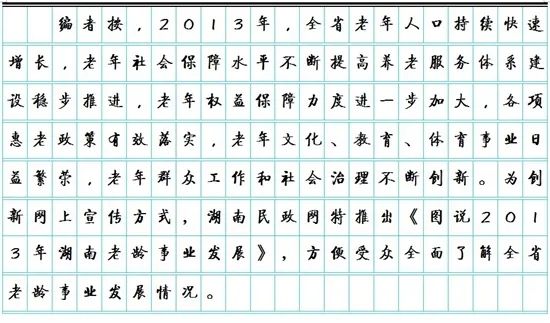 编者按，2013年，全省老年人口持续快速
增长，老年社会保障水平不断提高养老服务体系建
设稳步推进，老年权益保障力度进一步加大，各项
惠老政策有效落实，老年文化、教育、体育事业日
益繁荣，老年群众工作和社会治理不断创新。为创
新网上宣传方式，湖南民政网特推出《图说201
3年湖南老龄事业发展》，方便受众全面了解全省
老龄事业发展情况。